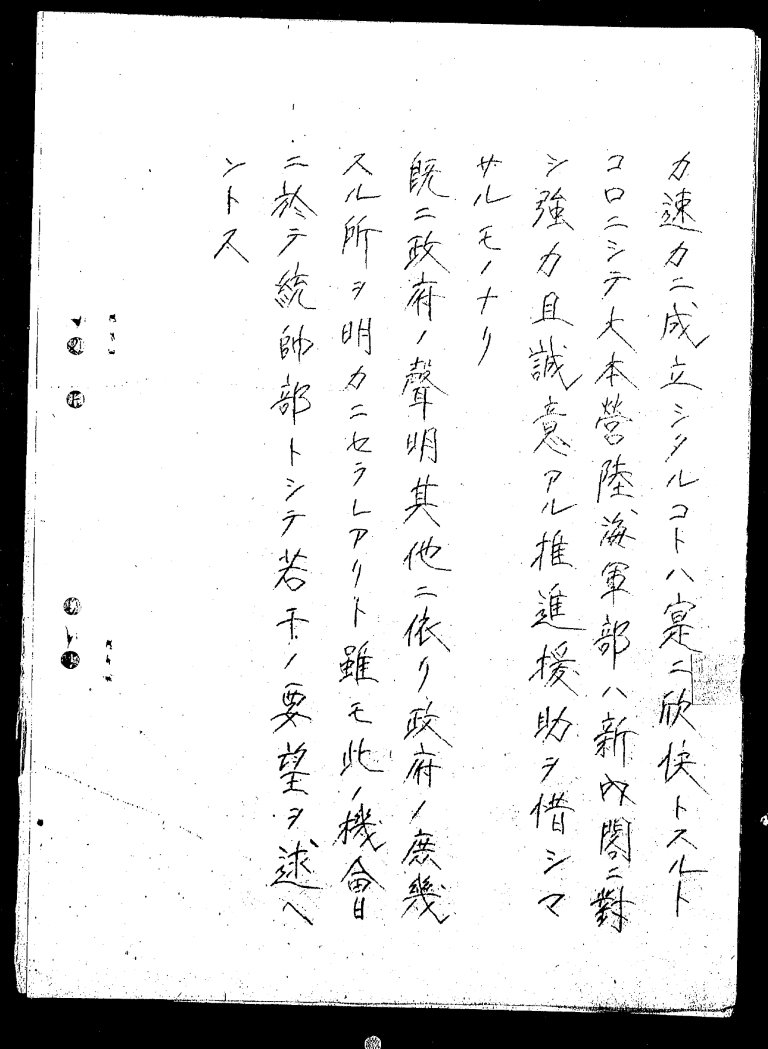 カ速カニ成立シタルコトハ寔ニ欣快トスルト
コロニシテ大本營陸海軍部ハ新内閣ニ對
シ強力且誠意アル推進援助ヲ借シマ
サルモノナリ
既ニ政府ノ聲明其他ニ依リ政府ノ庶幾
スル所ヲ明カニセラレアリト雖モ此ノ機會
ニ於テ統帥部トシテ若干ノ要望ヲ述ヘ
ントス